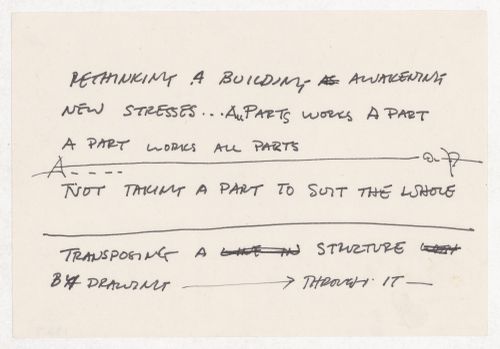 RETHINKING A BUILDING AS AWAKENING
NEW STRESSES... ALL PARTS WORKS A PART
A PART WORKS ALL PARTS
A
NOT TAKING A PART TO SUIT THE WHOLE
TRANSPOSING A LINE IN STRUCTURE
BY DRAWING THROUGH IT